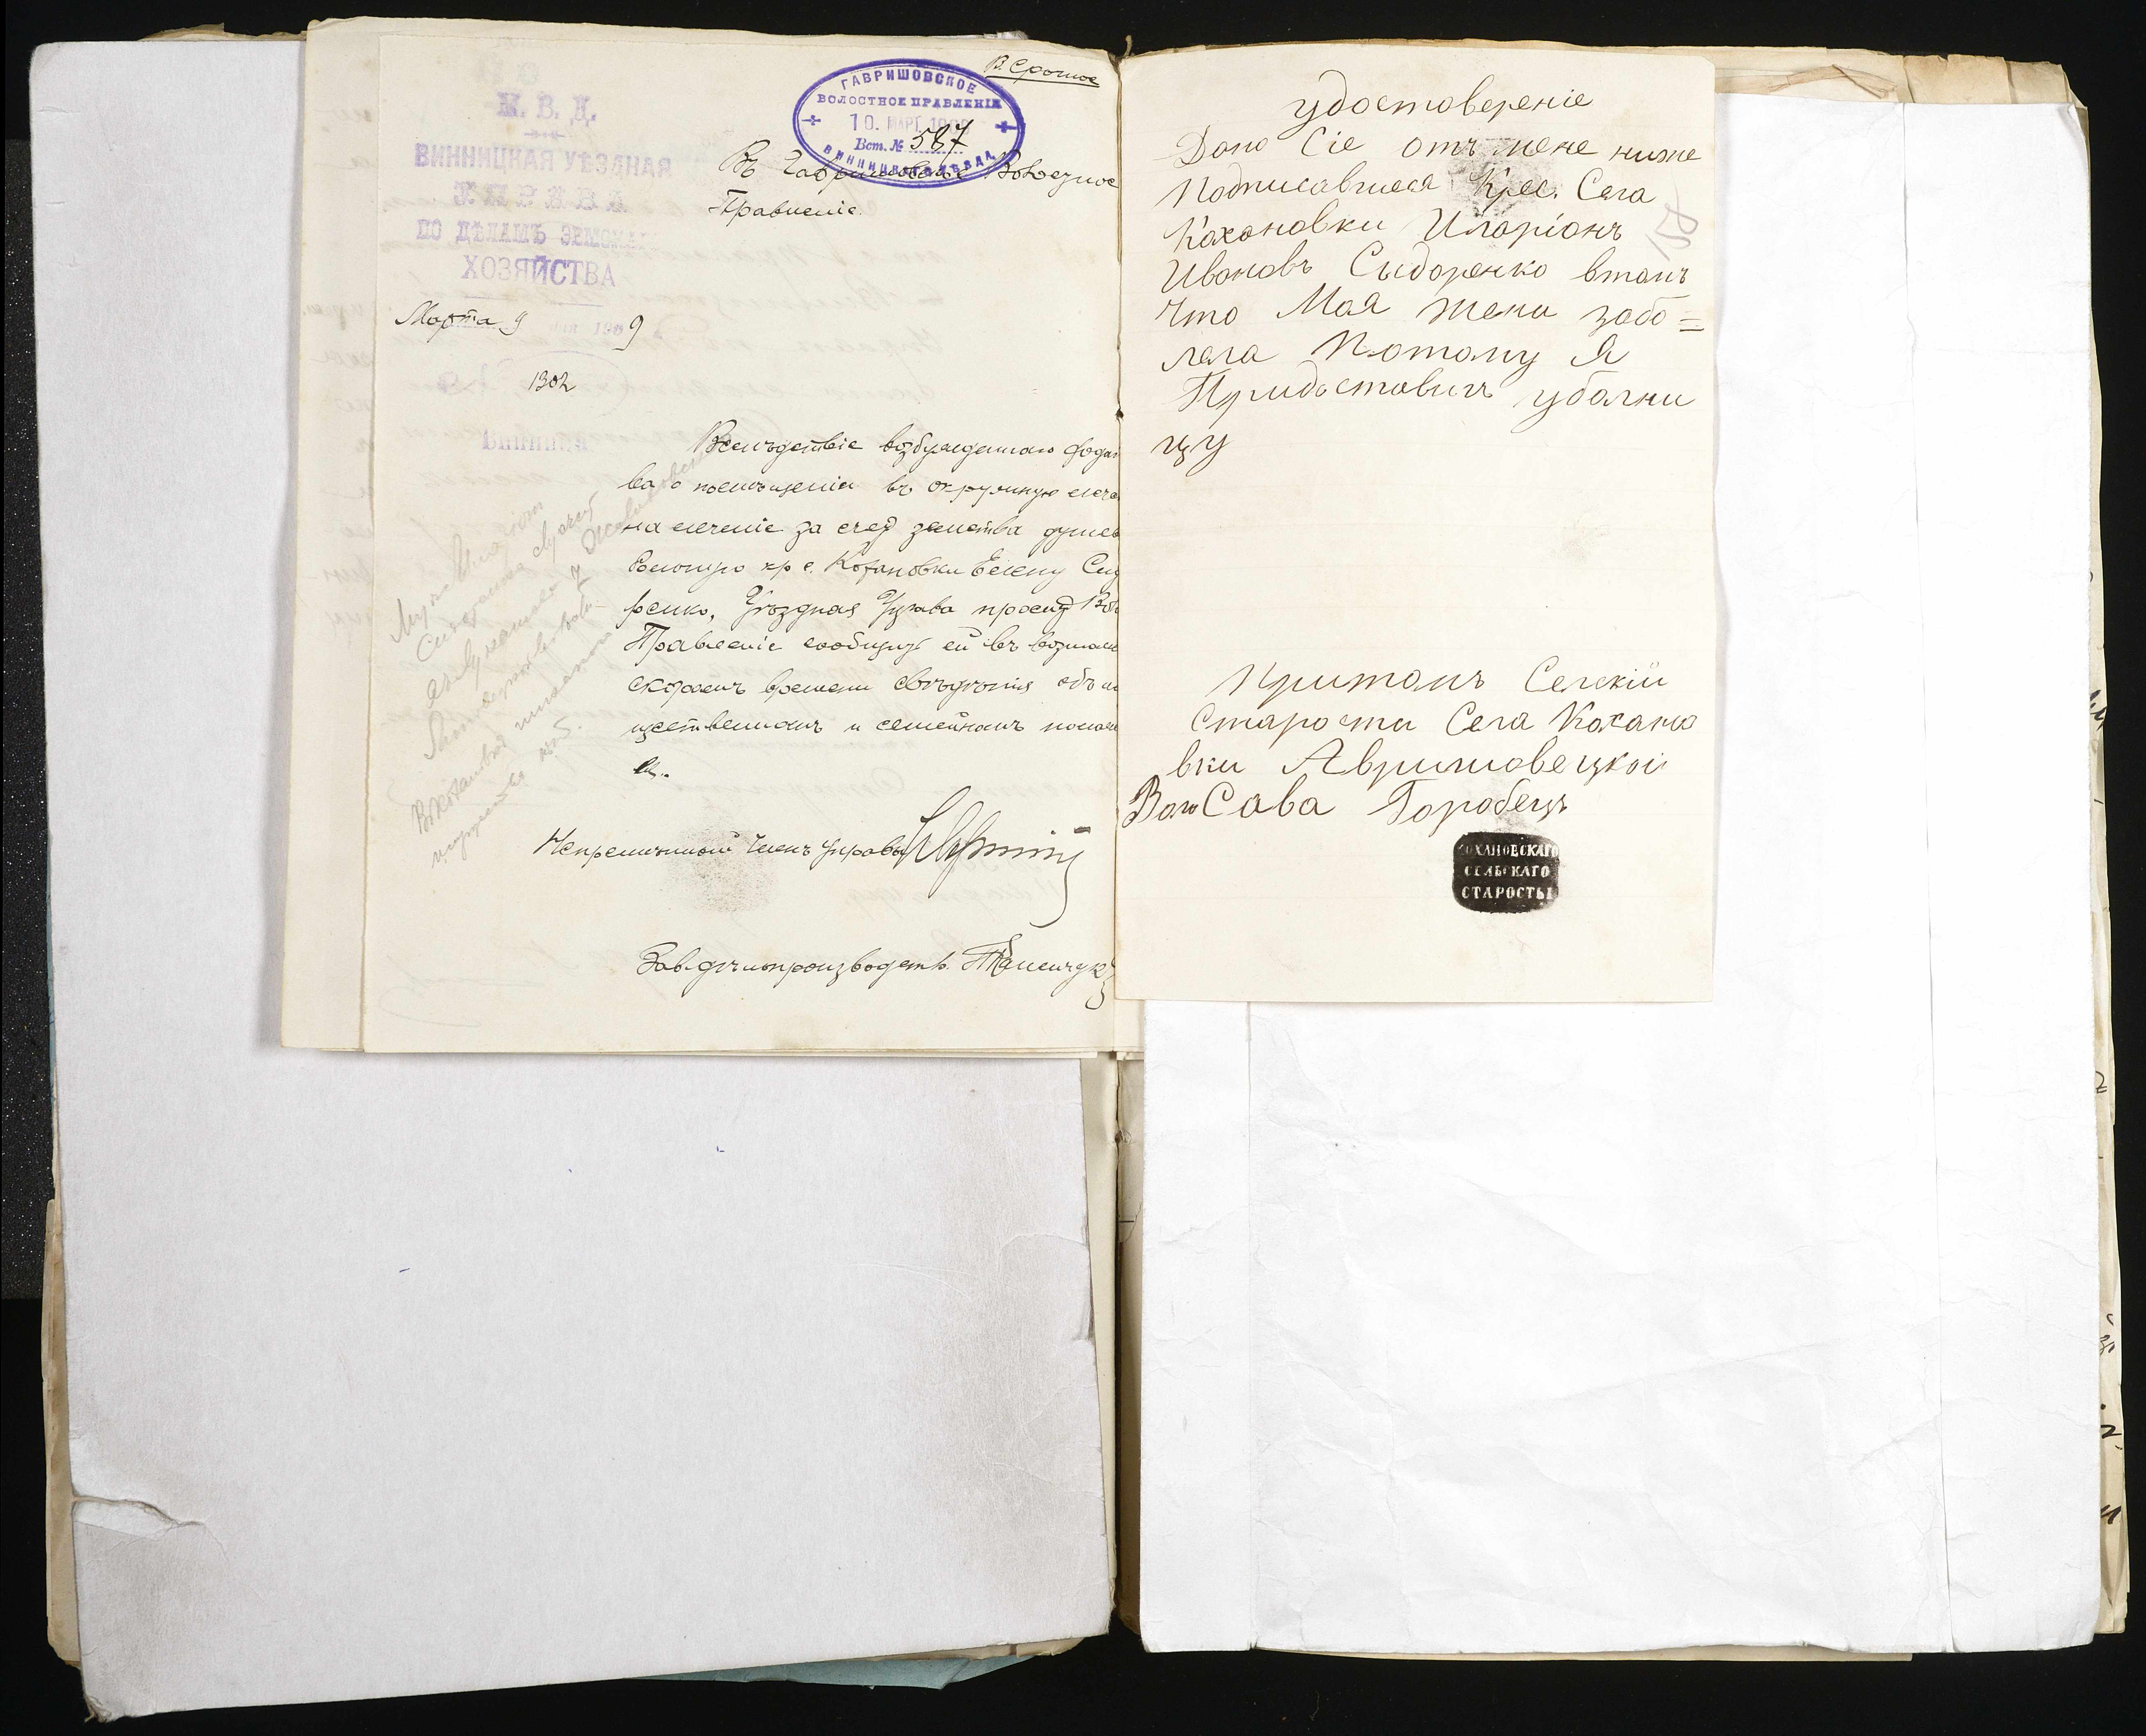 В. Срочное
М. В. Д.
ВИННИЦКАЯ УѢЗДНАЯ
УПРАВА
ПО ДѢЛАМЪ ЗЕМСКАГО
ХОЗЯЙСТВА
Марта 9 1909
1302
Винница
ГАВРИШОВСКОЕ
ВОЛОСТНОЕ ПРАВЛЕНІЕ
10. МАРТ. 1909
Вст. № 587
ВИННИЦКАГО УѢЗДА
Въ Гавришовское Волостное
Правленіе.
Вслѣдствіе возбужденнаго хода
ва о помѣщеніи въ окружную леч
на леченіе за счет земства душев
больную кр с. Кохановки Елену Сид
ренко, Уѣздная Управа просит Вол
Правленіе сообщить ей въ возмож
скоромъ времени свѣдѣнія объ им
щественномъ и семейномъ полож
ея.
Непремѣнный Членъ Управы
Зав. дѣлопроизводств.
удостоверение
Дано Сіе отъ мене ниже
Подписавшеся Крес. Села
Кохановки Иларіонъ
Ивановъ Сыдоренко втомъ
Что Моя жена забо=
лела Потому Я
Придоставилъ уболни
цу
Притомъ Селскій
Староста Села Кохано
вки Авришовецкой
Воло Сава Горобецъ
КОХАНОВСКАГО
СЕЛЬСКАГО
СТАРОСТЫ